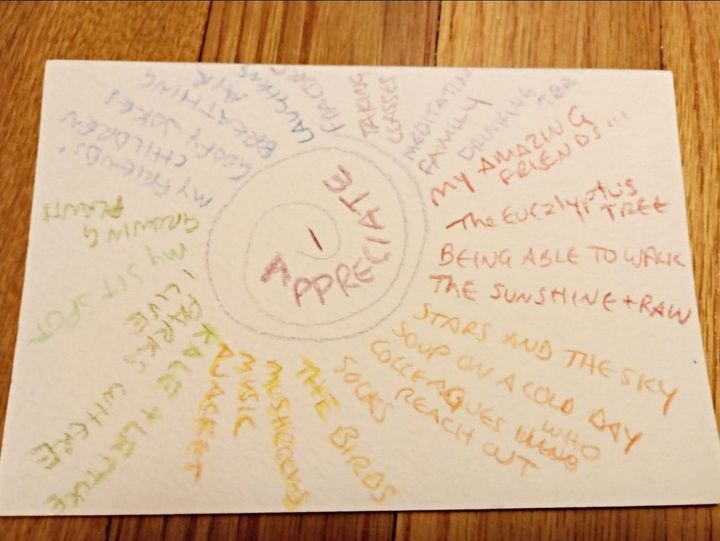 I
APPRECIATE
MY AMAZING
FRIENDS...
The Eucalyptus
TREE
BEING ABLE TO WALK
THE SUNSHINE + RAIN
STARS AND THE SKY
SOUP ON A COLD DAY
COLLEAGUES WHO
REACH OUT
SOCKS
THE BIRDS
MUSHROOMS
MUSIC
A JACKET
KALE + LETTUCE
PARKS WHERE
I LIVE
MY SIT SPOT
GROWING
PLANTS
MY FRIENDS'
CHILDREN
GOOFY JOKES
BREATHING
AIR
LAUGHING
TAKING
CLASSES
MEDITATION
FAMILY
DRINKING
TEA